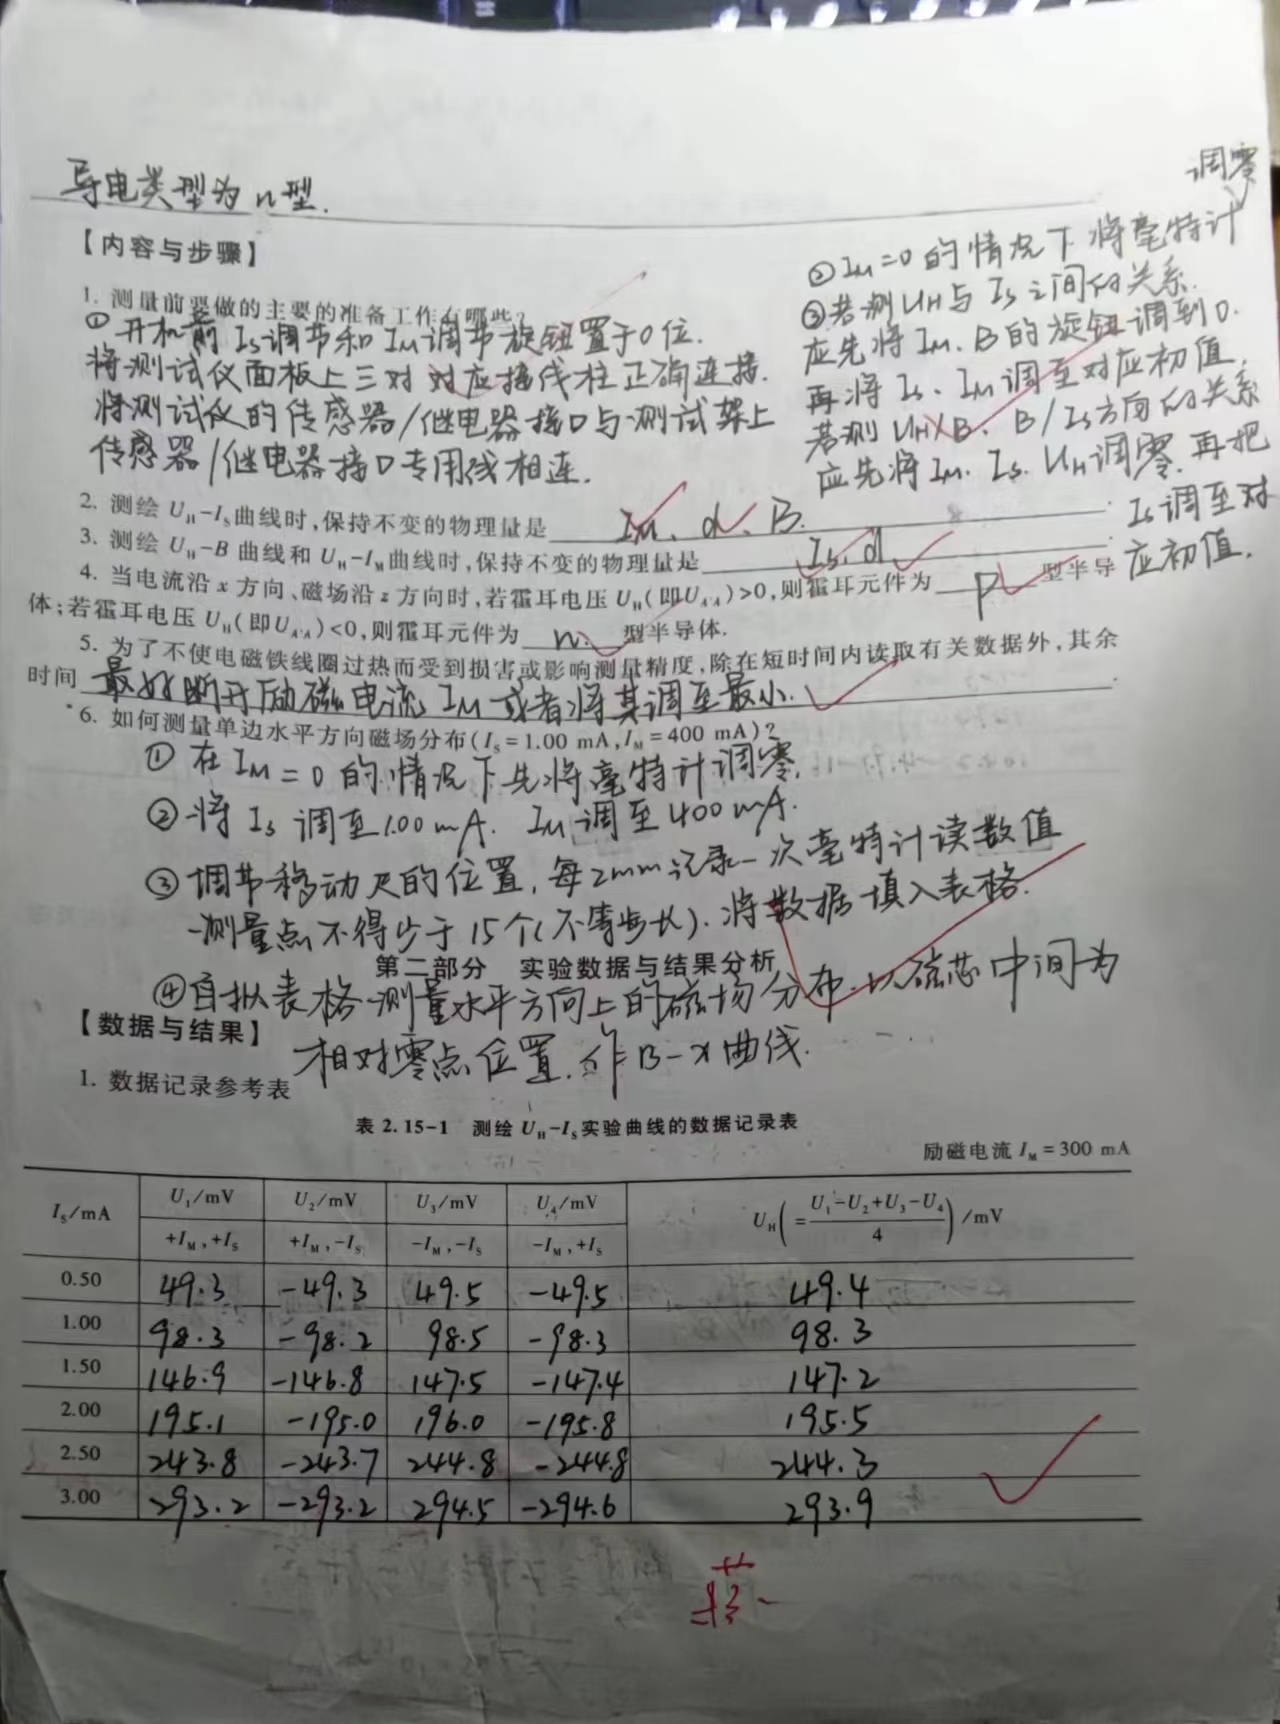 导电类型为n型.
【内容与步骤】
1. 测量前要做的主要的准备工作有哪些?
① 开机前 Is调节和IM调节旋钮置于0位.
将测试仪面板上三对对应接线柱正确连接.
将测试仪的传感器/继电器接口与测试架上
传感器/继电器接口专用线相连.
调零
② IM=0的情况下将毫特计
③若测UH与Is之间的关系.
应先将IM、B的旋钮调到0.
再将Is、IM调至对应初值.
若测UH、B、B/Is方向的关系
应先将IM、Is、UH调零.再把
Is调至对
应初值.
2. 测绘 UH-IS曲线时,保持不变的物理量是 IM、d、B.
3. 测绘 UH-B 曲线和 UH-IM曲线时,保持不变的物理量是 Is、d
4. 当电流沿 x 方向、磁场沿 z 方向时,若霍耳电压 UH(即UA'A)>0,则霍耳元件为 p 型半导
体;若霍耳电压 UH(即UA'A)<0,则霍耳元件为 n. 型半导体.
5. 为了不使电磁铁线圈过热而受到损害或影响测量精度,除在短时间内读取有关数据外,其余
时间 最好断开励磁电流 IM 或者将其调至最小.
6. 如何测量单边水平方向磁场分布(IS=1.00 mA,IM=400 mA)?
① 在 IM=0的情况下先将毫特计调零.
② 将 Is 调至1.00mA. IM调至400mA.
③ 调节移动尺的位置,每2mm记录一次毫特计读数值
测量点不得少于15个(不等步长).将数据填入表格.
第二部分 实验数据与结果分析
④自拟表格测量水平方向上的磁场分布.以磁芯中间为
【数据与结果】
相对零点位置.作B-x曲线.
1. 数据记录参考表
表 2.15-1 测绘 UH-IS实验曲线的数据记录表
励磁电流 IM=300 mA
IS/mA U1/mV U2/mV U3/mV U4/mV UH(=(U1-U2+U3-U4)/4)/mV
+IM,+IS +IM,-IS -IM,-IS -IM,+IS
0.50 49.3 -49.3 49.5 -49.5 49.4
1.00 98.3 -98.2 98.5 -98.3 98.3
1.50 146.9 -146.8 147.5 -147.4 147.2
2.00 195.1 -195.0 196.0 -195.8 195.5
2.50 243.8 -243.7 244.8 -244.8 244.3
3.00 293.2 -293.2 294.5 -294.6 293.9